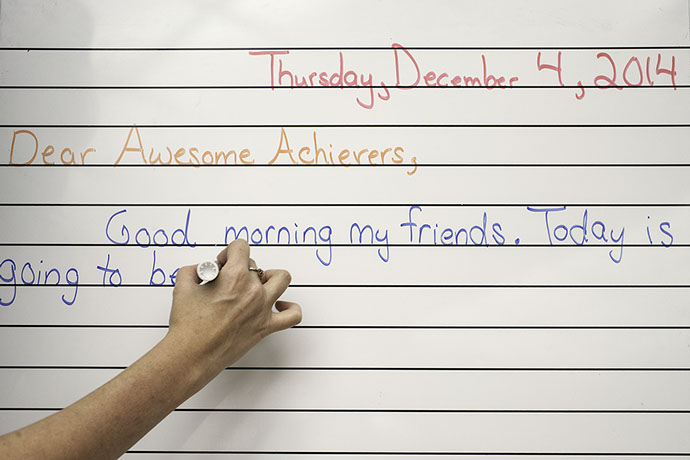 Thursday, December 4, 2014
Dear Awesome Achievers,
Good morning my friends. Today is
going to be